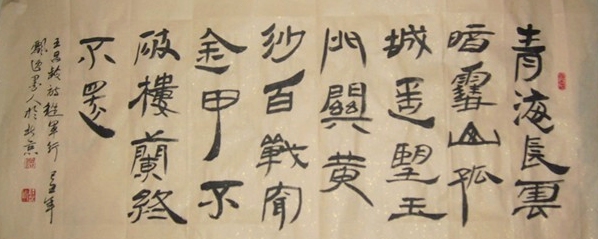 青海長雲
暗雪山孤
城遥望玉
門關黄
沙百戰穿
金甲不
破樓蘭終
不還
王昌齡詩從軍行 己丑年
墨人於北京